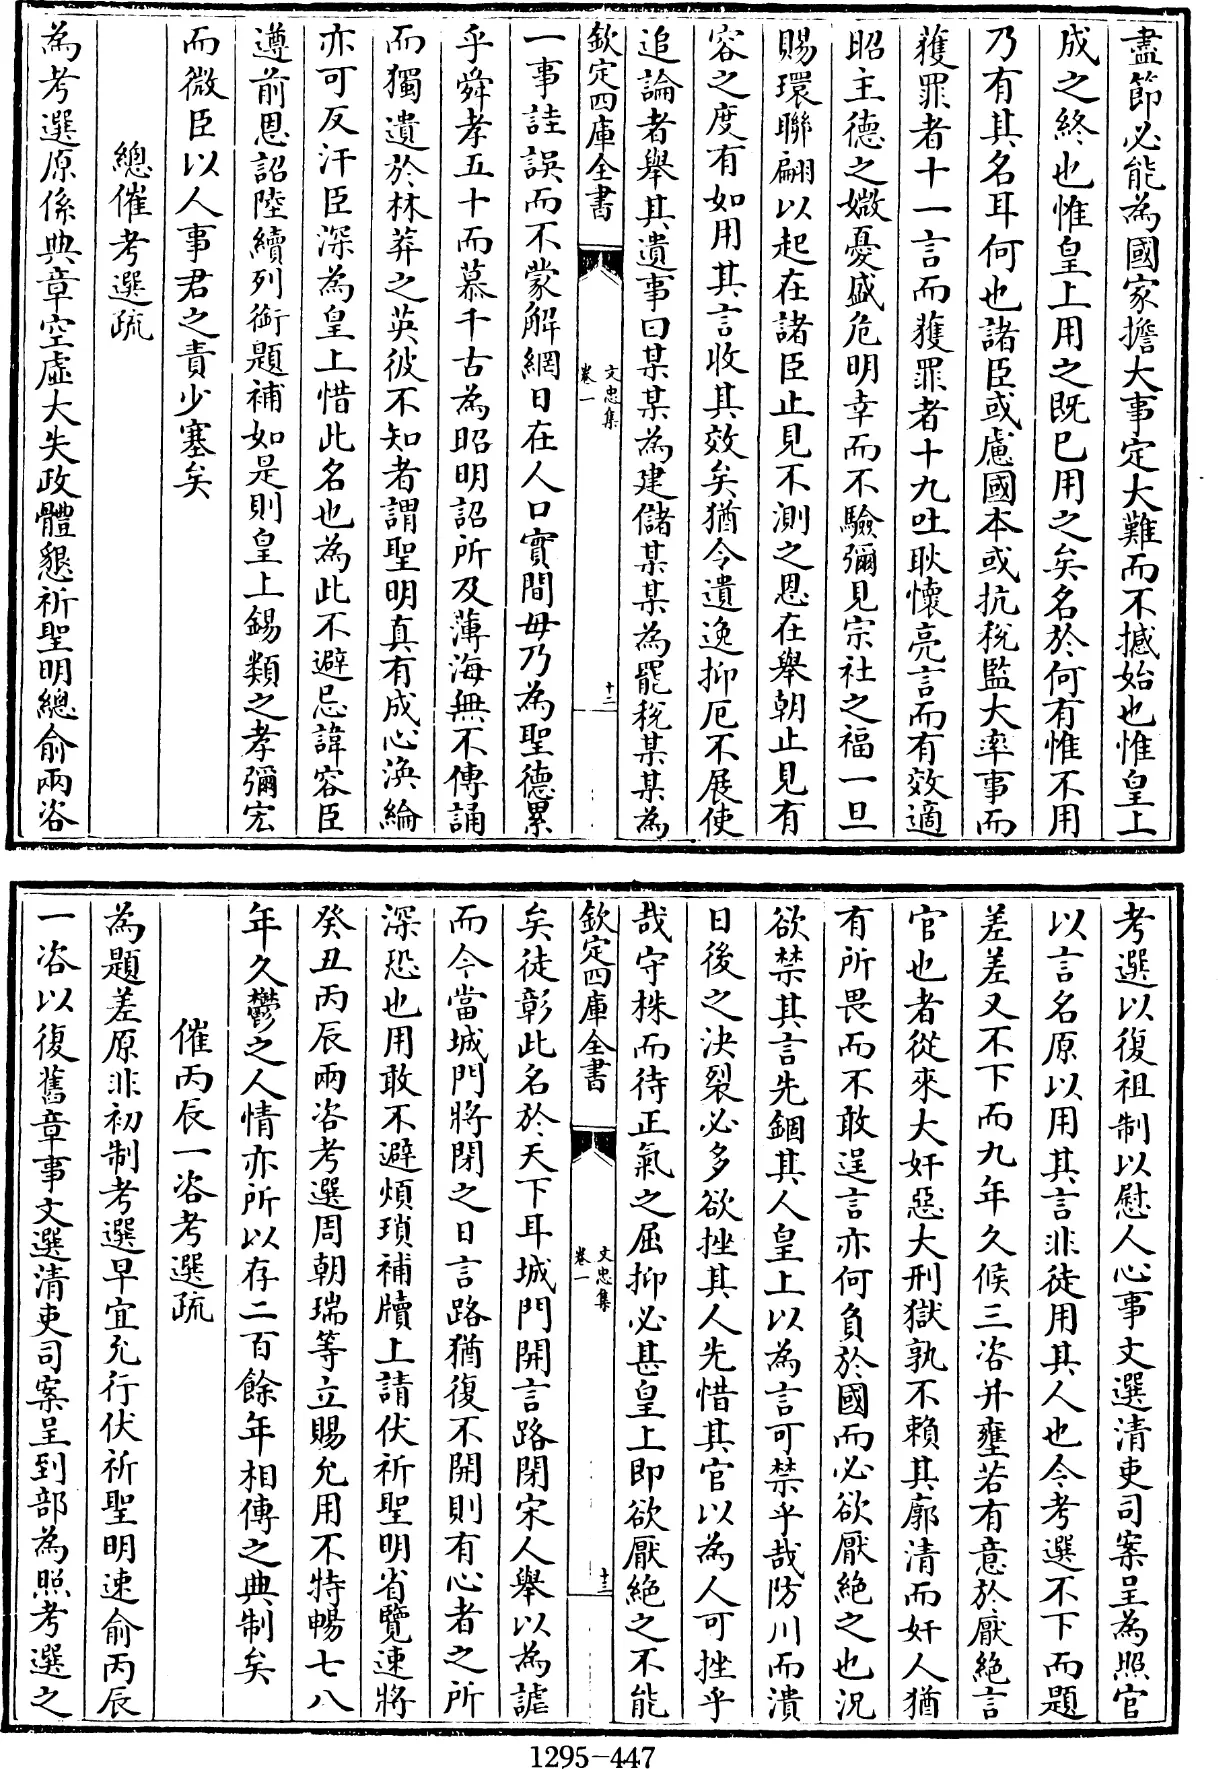 盡節必能為國家擔大事定大難而不撼始也惟皇上
成之終也惟皇上用之既已用之矣名於何有惟不用
乃有其名耳何也諸臣或慮國本或抗稅監大率事而
獲罪者十一言而獲罪者十九吐耿懷亮言而有效適
昭主德之媺憂盛危明幸而不驗彌見宗社之福一旦
賜環聯翩以起在諸臣止見不測之恩在舉朝止見有
容之度有如用其言收其效矣猶令遺逸抑厄不展使
追論者舉其遺事曰某某為建儲某某為罷稅某某為
欽定四庫全書
文忠集
卷一
十二
一事詿誤而不蒙解網日在人口實間毋乃為聖德累
乎舜孝五十而慕千古為昭明詔所及薄海無不傳誦
而獨遺於林莽之英彼不知者謂聖明真有成心渙綸
亦可反汗臣深為皇上惜此名也為此不避忌諱容臣
遵前恩詔陸續列銜題補如是則皇上錫類之孝彌宏
而微臣以人事君之責少塞矣
總催考選疏
為考選原係典章空虛大失政體懇祈聖明總俞兩咨
考選以復祖制以慰人心事文選清吏司案呈為照官
以言名原以用其言非徒用其人也今考選不下而題
差差又不下而九年久候三咨并壅若有意於厭絶言
官也者從來大奸惡大刑獄孰不賴其廓清而奸人猶
有所畏而不敢逞言亦何負於國而必欲厭絶之也況
欲禁其言先錮其人皇上以為言可禁乎哉防川而潰
日後之決裂必多欲挫其人先惜其官以為人可挫乎
哉守株而待正氣之屈抑必甚皇上即欲厭絶之不能
欽定四庫全書
文忠集
卷一
十三
矣徒彰此名於天下耳城門開言路閉宋人舉以為謔
而今當城門將閉之日言路猶復不開則有心者之所
深恐也用敢不避煩瑣補牘上請伏祈聖明省覽速將
癸丑丙辰兩咨考選周朝瑞等立賜允用不特暢七八
年久鬱之人情亦所以存二百餘年相傳之典制矣
催丙辰一咨考選疏
為題差原非初制考選早宜允行伏祈聖明速俞丙辰
一咨以復舊章事文選清吏司案呈到部為照考選之
1295-447